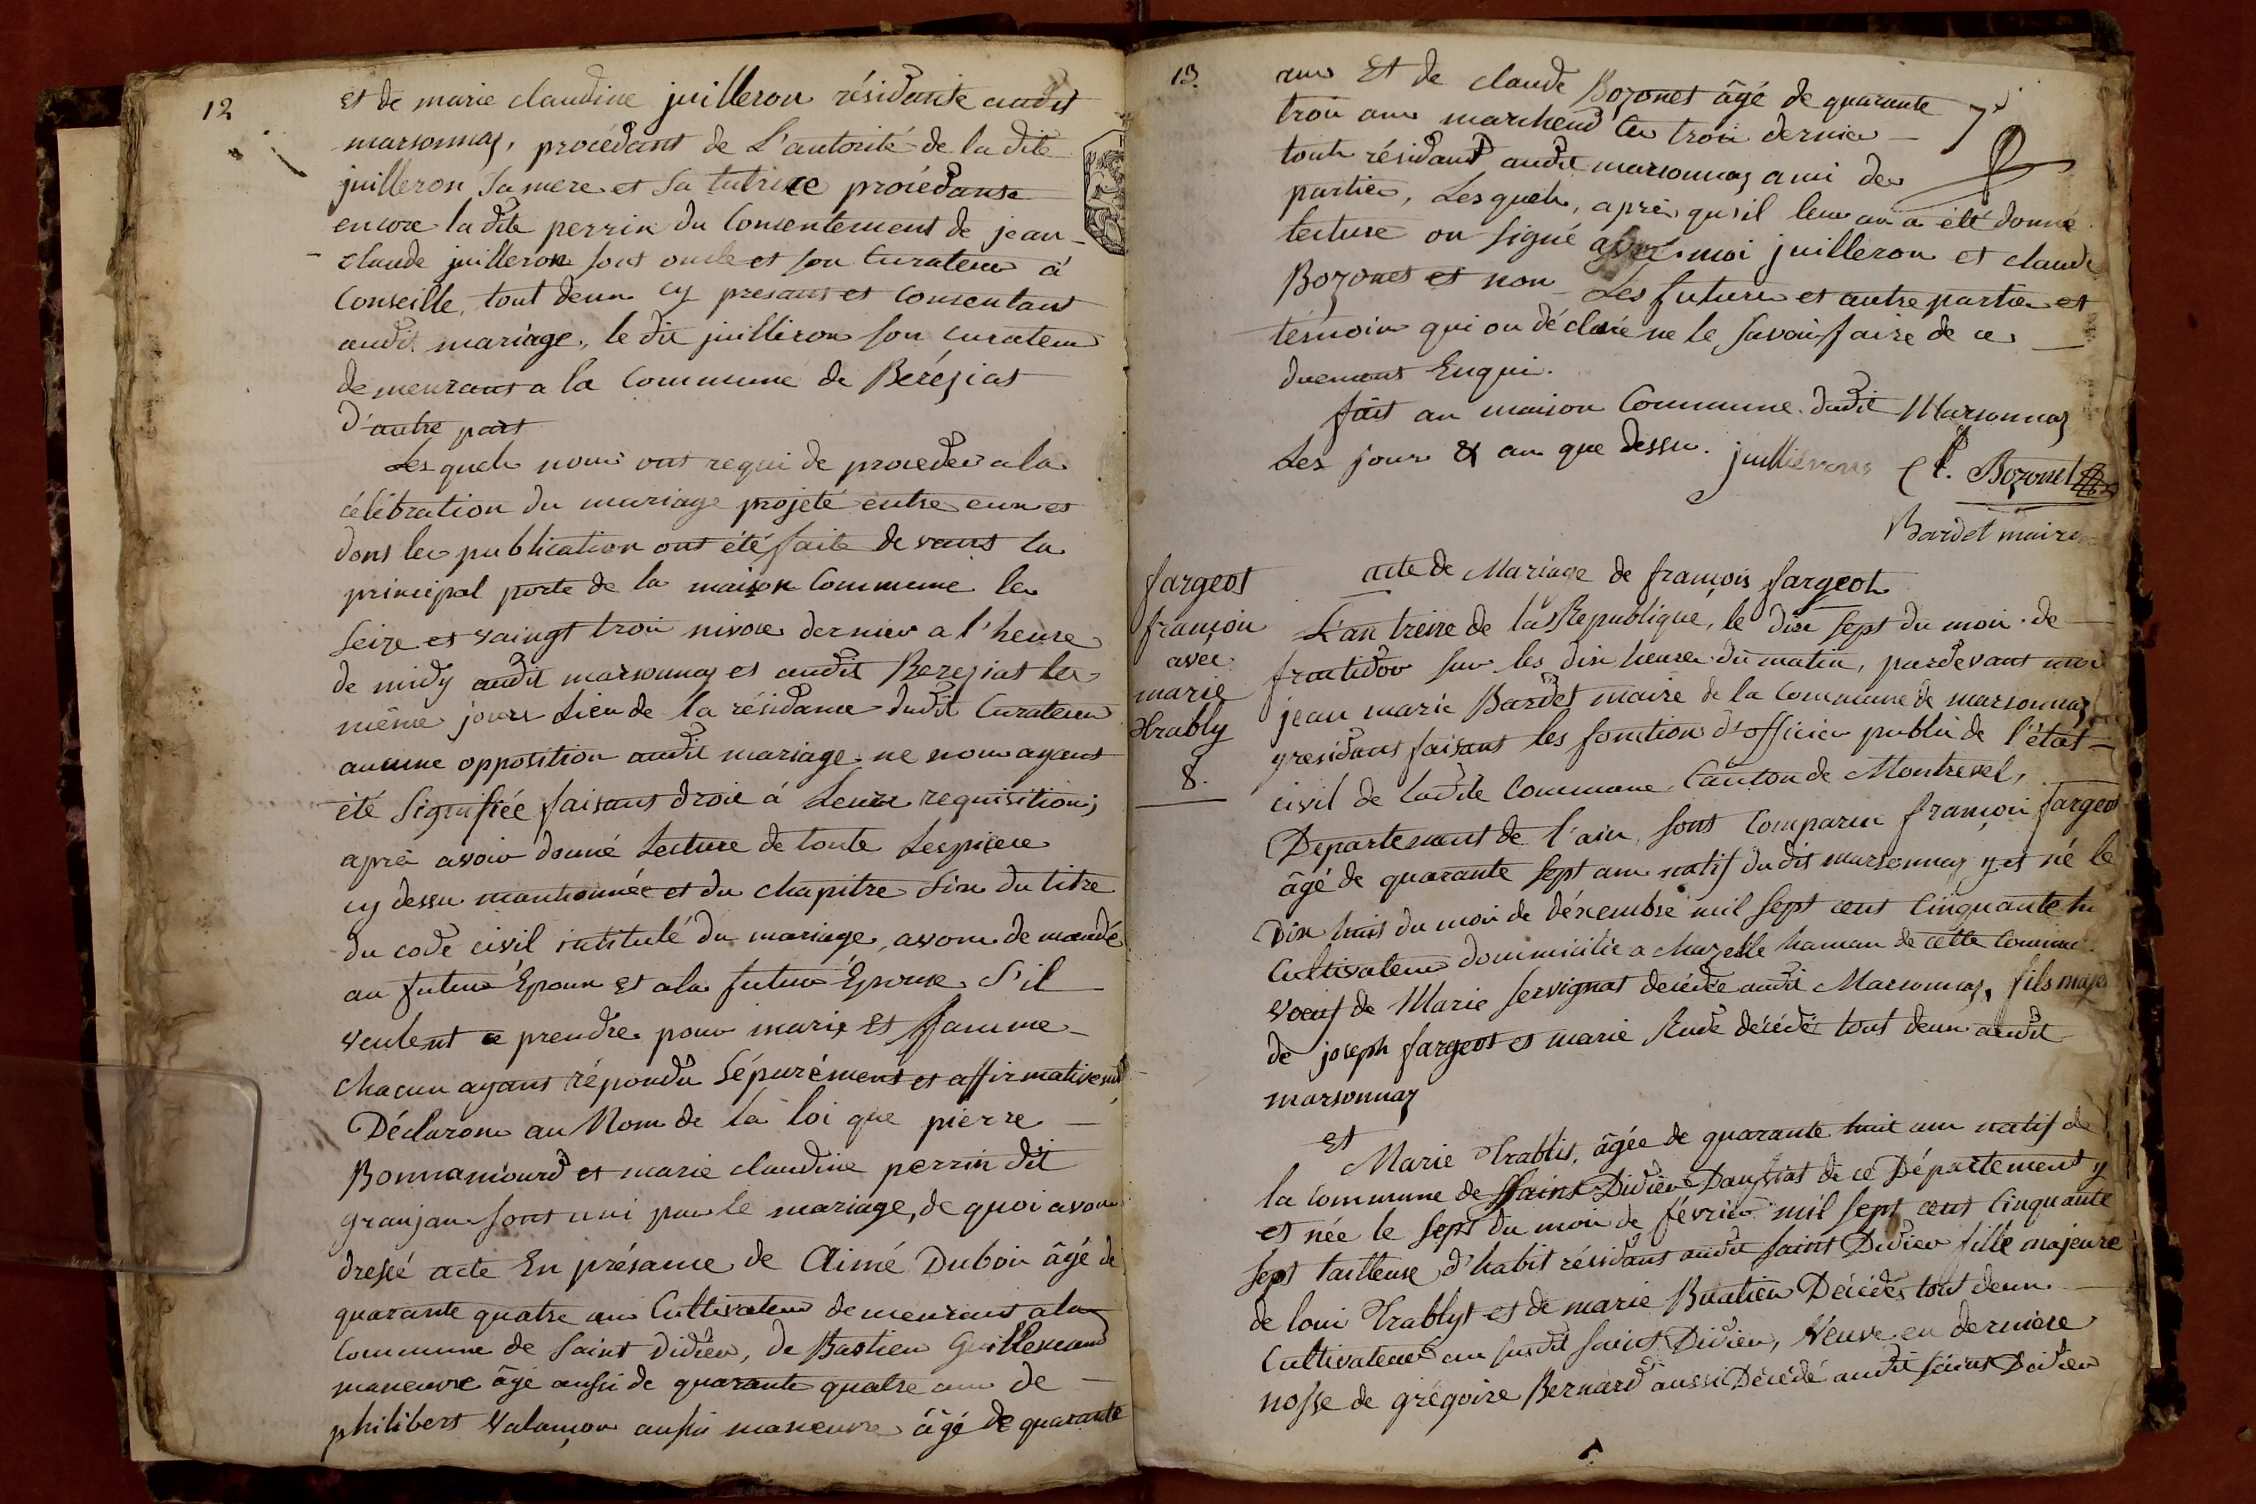 12
et de marie claudine juilleron résidante audit
marsonnas, procédant de L'autorité de la dite
juilleron Sa mere et sa tutrice procédante
encore la dite perrin du Consentement de jean
claude juilleron sont oncle et son Curateur á
Conseille, tout deux cy presans et Consentans
audit mariage, le dit juilliron son curateur
demeurans a la Commune de Beréziat
D'autre part
Lesquels nous ont requi de proceder a la
célébration du mariage projeté entre eux et
dont les publication ont été faite devant la
principal porte de la maison Commune les
Seize et vaingt troi nivose dernier a l'heure
de midy audit marsonnas et audit Bereziat les
même jours Lieu de la résidance dudit Curateur
aucune opposition audit mariage ne nous ayant
été Signifiée faisant droit á Leure requisition;
aprés avoir donné Lecture de toute Les piece
cy dessu mantionnée et du chapitre Six du titre
du code civil intitulé du mariage, avons demandé
au futur Epoux et a la futur Epouse S'il
veulent ce prendre pour marix et famme
chacun ayant répondu Séparément et affirmativement
Déclarons au Nom de la loi que pierre
Bonnamourd et marie claudine perrin dit
granjan sont uni par le mariage, de quoi avons
dressé acte En présance de Aimé Duboi âgé de
quarante quatre ans Cultivateur demeurant a la
Commune de Saint Didier, de Bastien Guillemaud
maneuvre âgé aussi de quarante quatre ans de
philibert valançon aussi maneuvre âgé de quarante
13.
ans Et de claude Bozonet âgé de quarante
troi ans marchend les troi dernier
touts résidant audit marsonnas ami des
partier, Lesquels, après qu'il leur an a été donné
lecture on signé avec moi juilleron et claude
Bozonet et non Les futurs et autre partie et
témoin qui on déclaré ne le savoir faire de ce
duemant Enqui.
fait an maison Commune dudit Marsonnas
Les jour & an que dessu. juillierons Cl. Bozonet
Bardet maire
fargeot
françoi
avec
marie
Trably
8.
acte de Mariage de françois fargeot
L'an treize de la Republique, le dix sept du moi de
fructidor sur les dix heures du matin, pardevant moi
jean marie Bardet maire de la Commune de marsonnas
y residant faisant les fonction d'officier public de l'état
civil de ladite Commune Canton de Montrevel,
Département de l'ain, sont Comparu françoi fargeot
âgé de quarante sept ans natif dudit marsonnas y et né le
Dix huit du moi de décembre mil sept cent cinquante
Cultivateur dommicilié a chazelle hamau de cette Commune
voeuf de Marie servignat decédée audit Marsonnas, fils majeur
de joseph fargeot et marie Rude décédé tout deux audit
marsonnas
Et
Marie Trablit, âgée de quarante huit ans natif de
la Commune de Saint Didier Daussiat de ce Département y
et née le sept du moi de février mil sept cent cinquante
sept tailleuse d'habit résidant audit saint Didier fille majeure
de loui Trablyt et de marie Buatier Décédés tout deux
Cultivateurs au susdit saint Didier, Veuve en derniere
nosse de grégoire Bernard aussi Décédé audit saint Didier